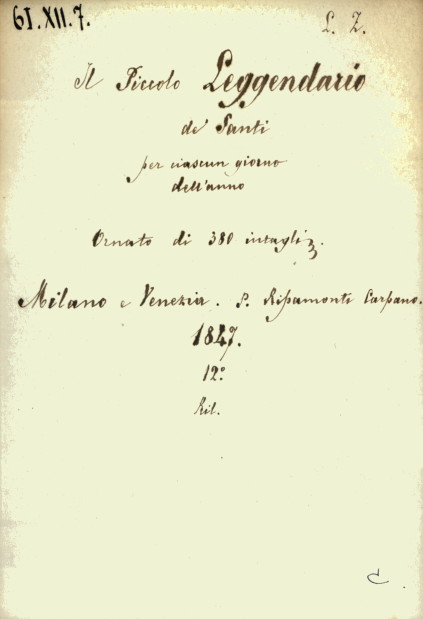 61.XII.7.
L. Z.
Il Piccolo Leggendario
de' Santi
per ciascun giorno
dell'anno
Ornato di 380 intagli.
Milano e Venezia. P. Ripamonti Carpano.
1847.
12º
Ril.
C